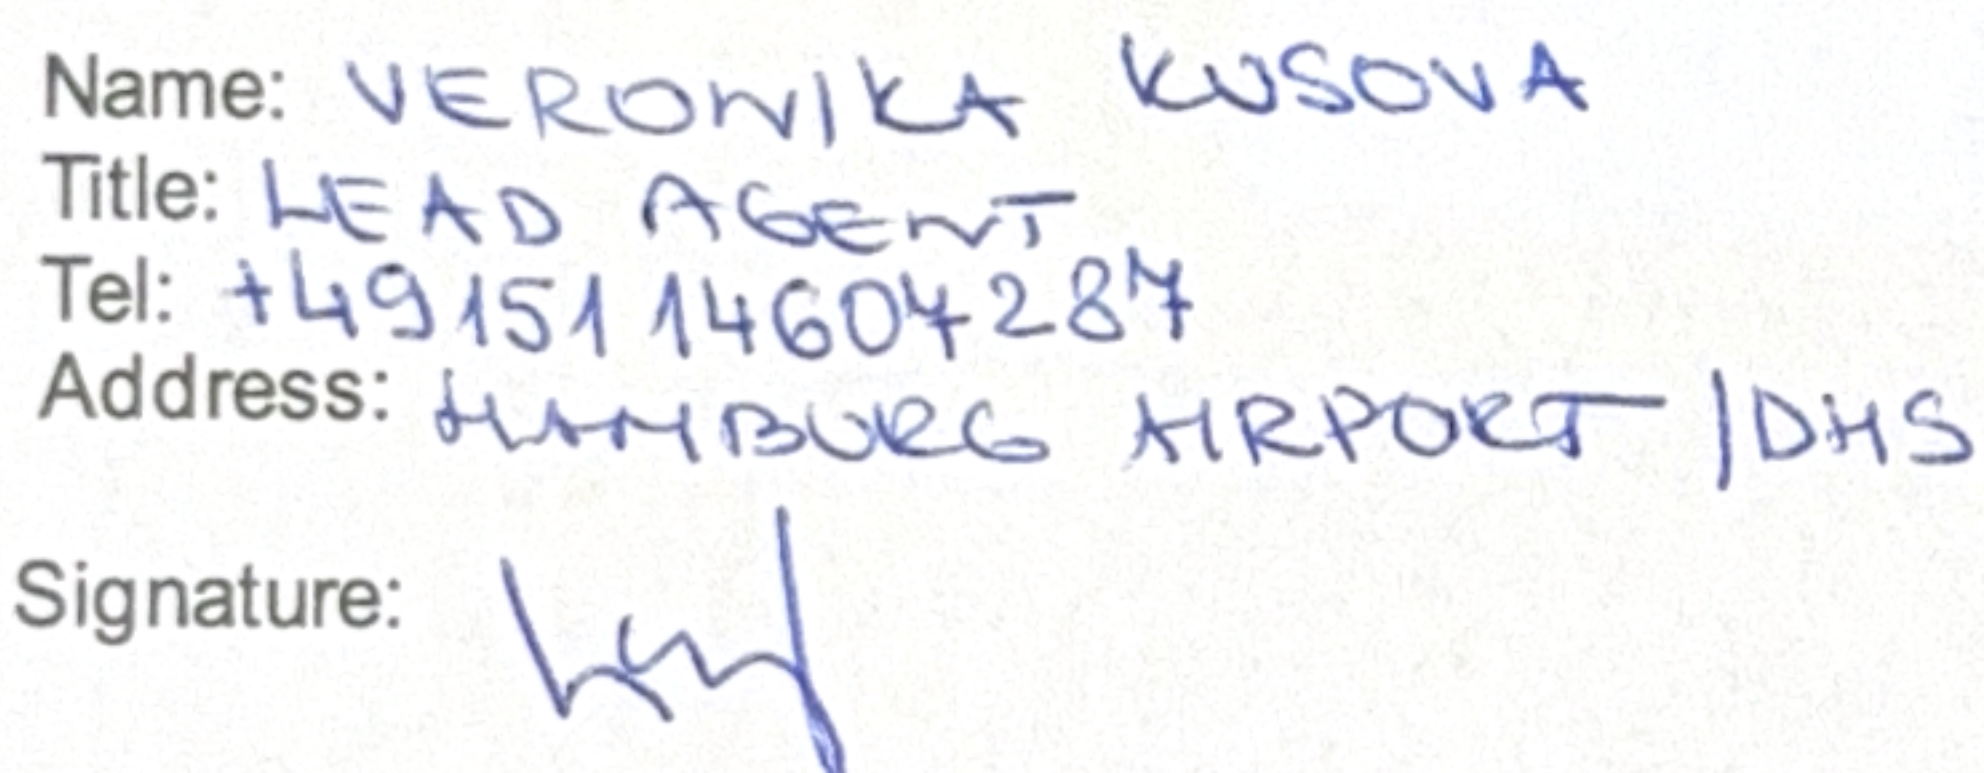 Name: VERONIKA KUSOVA
Title: LEAD AGENT
Tel: +49151 14607287
Address: HAMBURG AIRPORT / DHS
Signature: